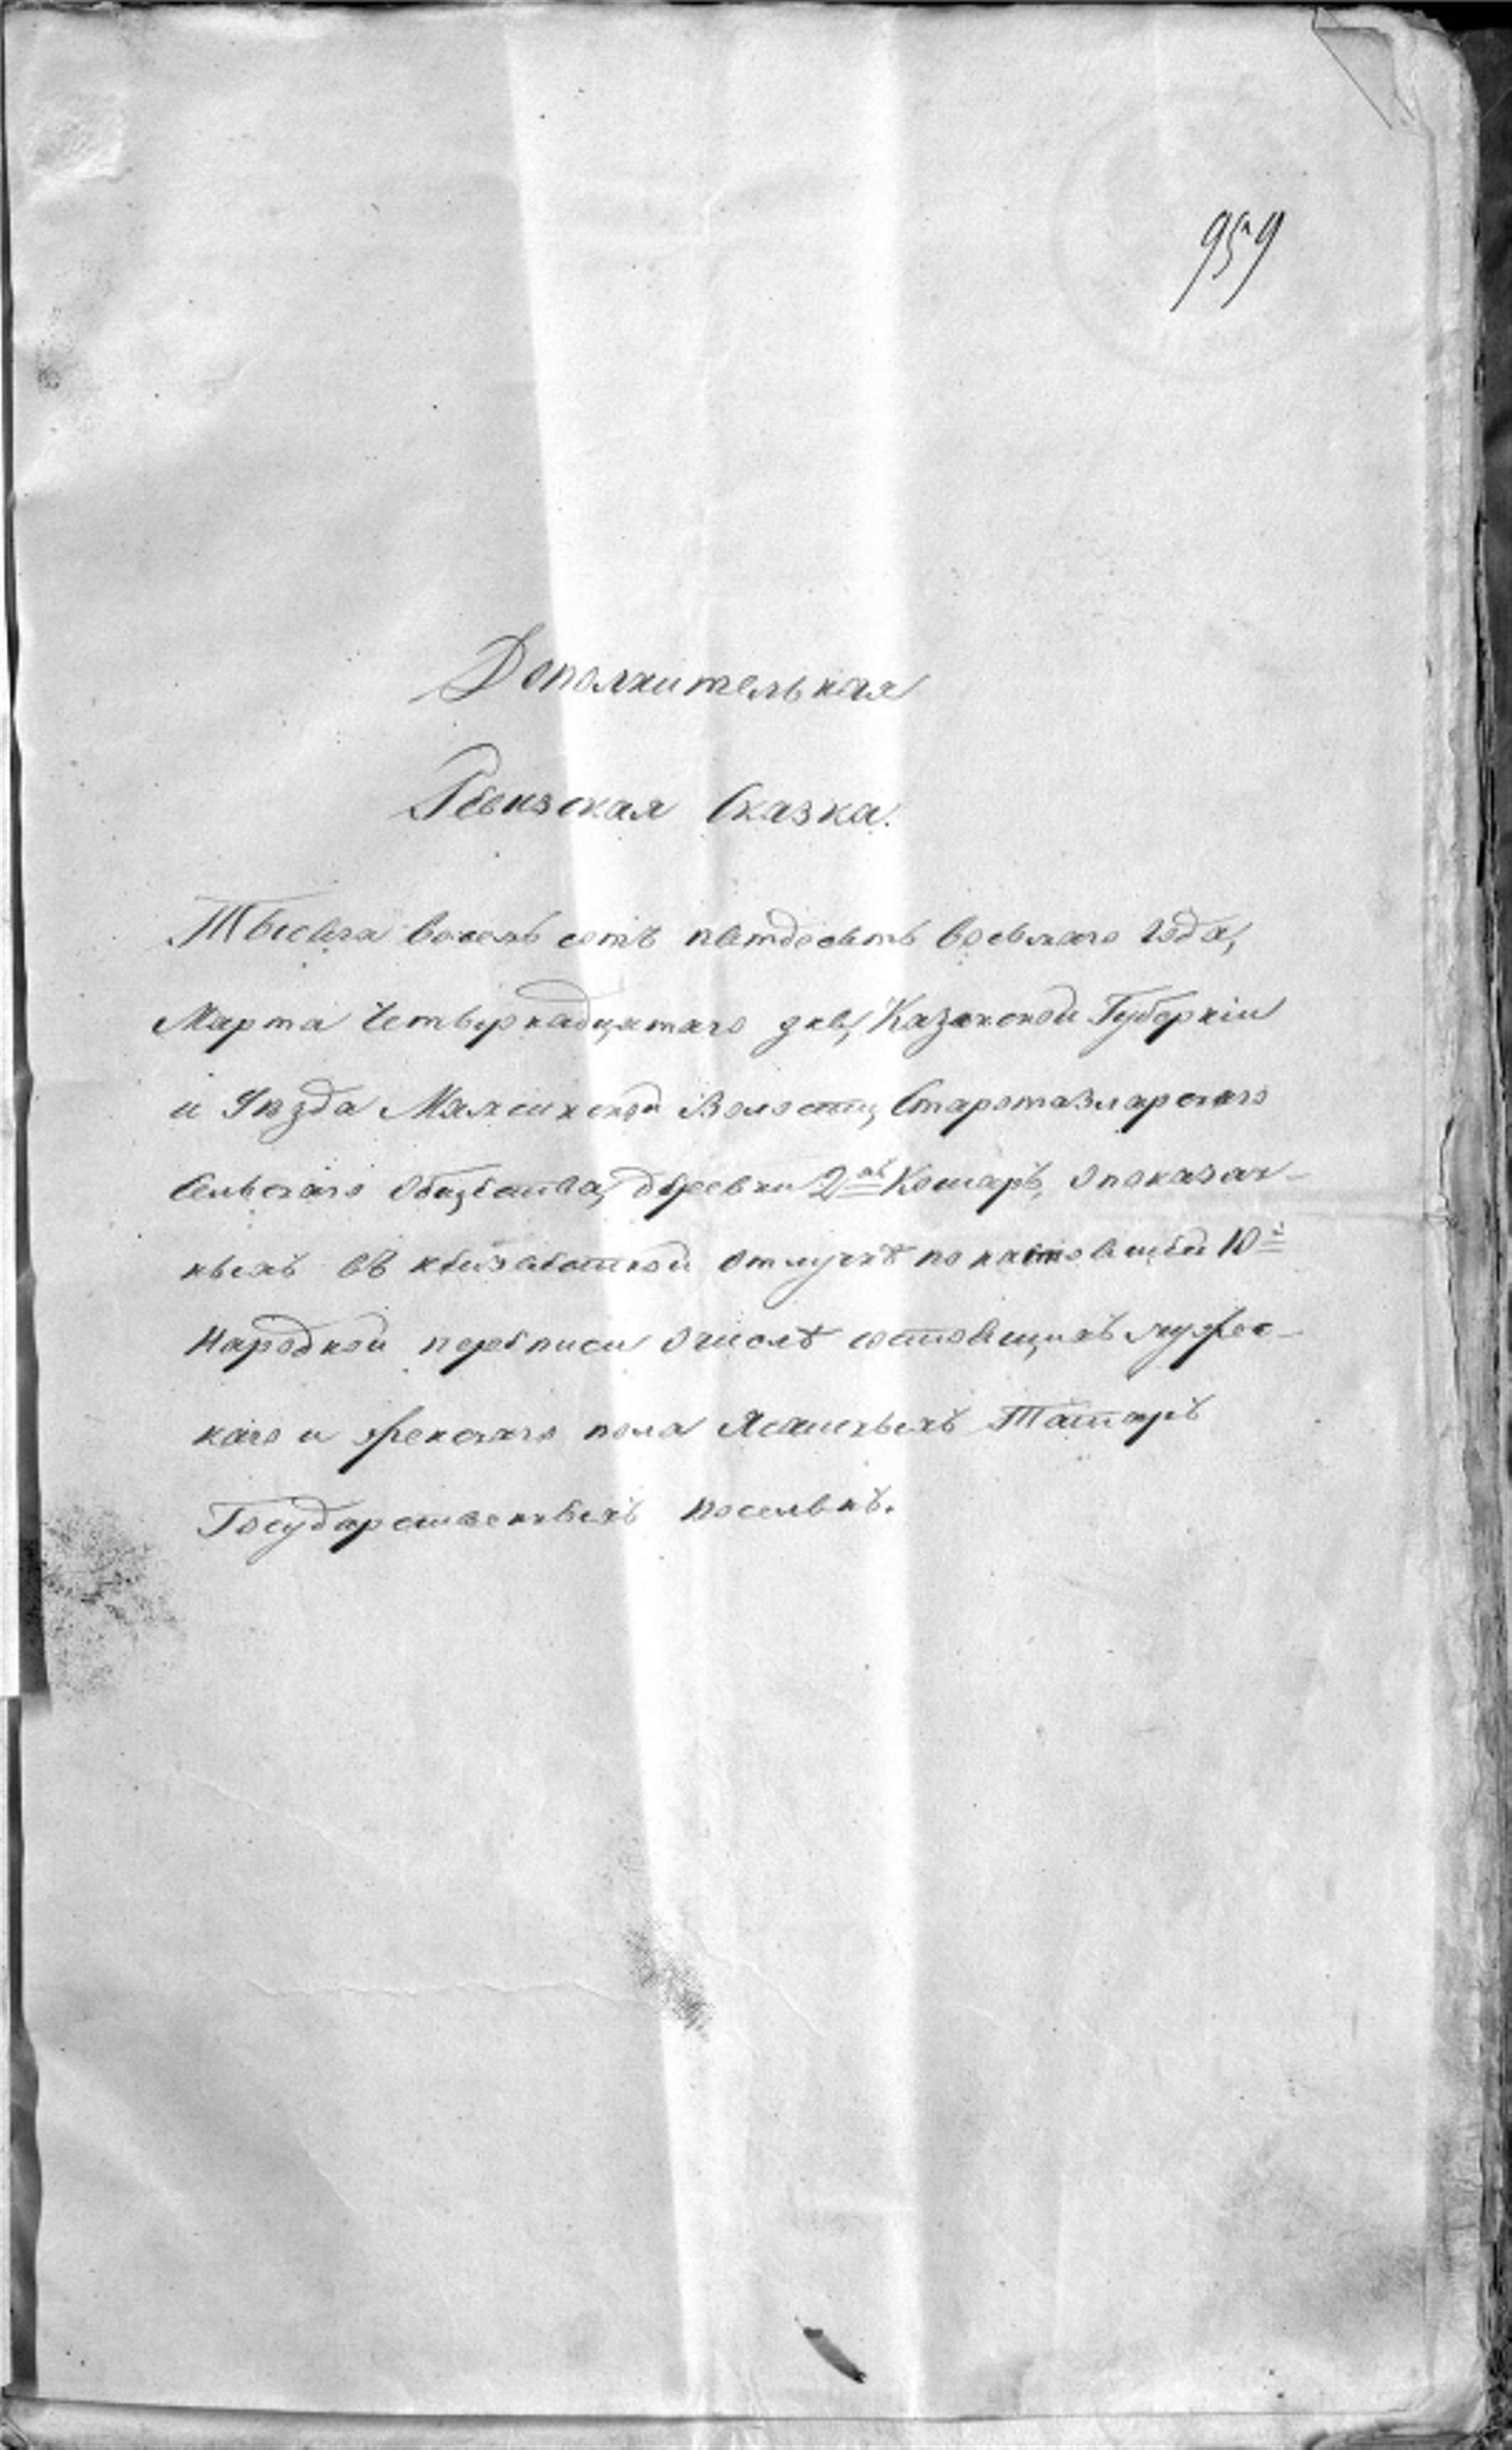 959
Дополнительная
Ревизская Сказка.
Тысяча восемь сотъ пятдесятъ восьмаго года,
Марта Четырнадцатаго дня, Казанской Губерніи
и Уѣзда Мамсинской Волости, Старотазларскаго
Сельскаго Общества, деревни 2хъ Кошаръ, о показан-
ныхъ въ неизвѣстной отлучкѣ по настоящей 10й
Народной переписи о числѣ состоящихъ мужес-
каго и женскаго пола Ясашныхъ Татаръ
Государственныхъ поселянъ.